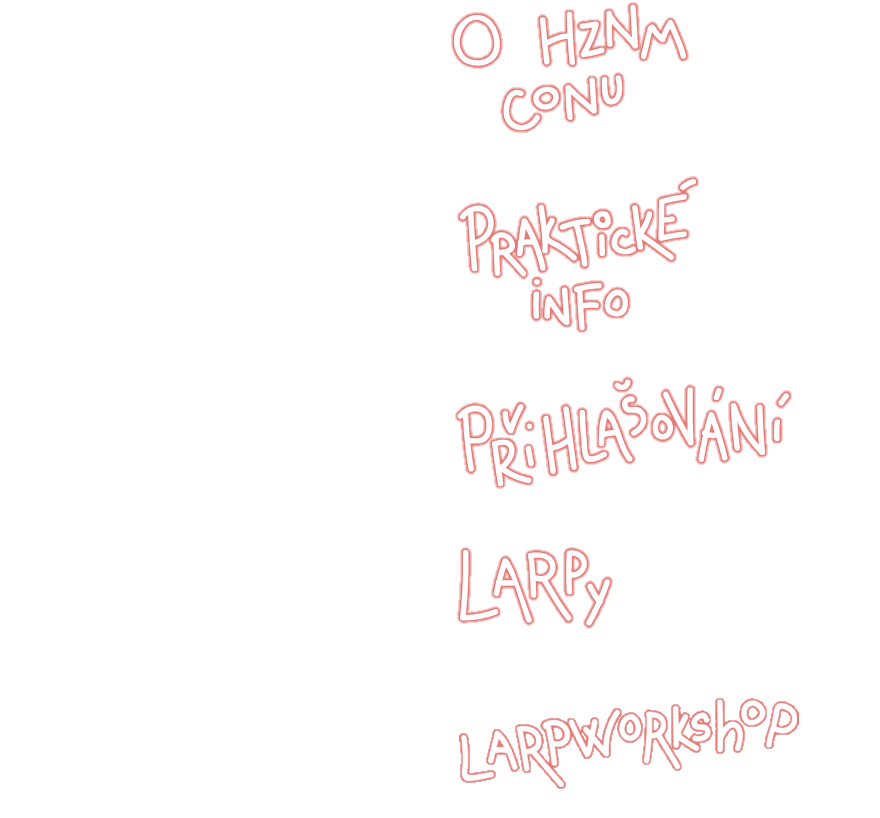 O HZNM
CONU
PRAKTICKÉ
INFO
PŘIHLAŠOVÁNÍ
LARPY
LARPWORKSHOP